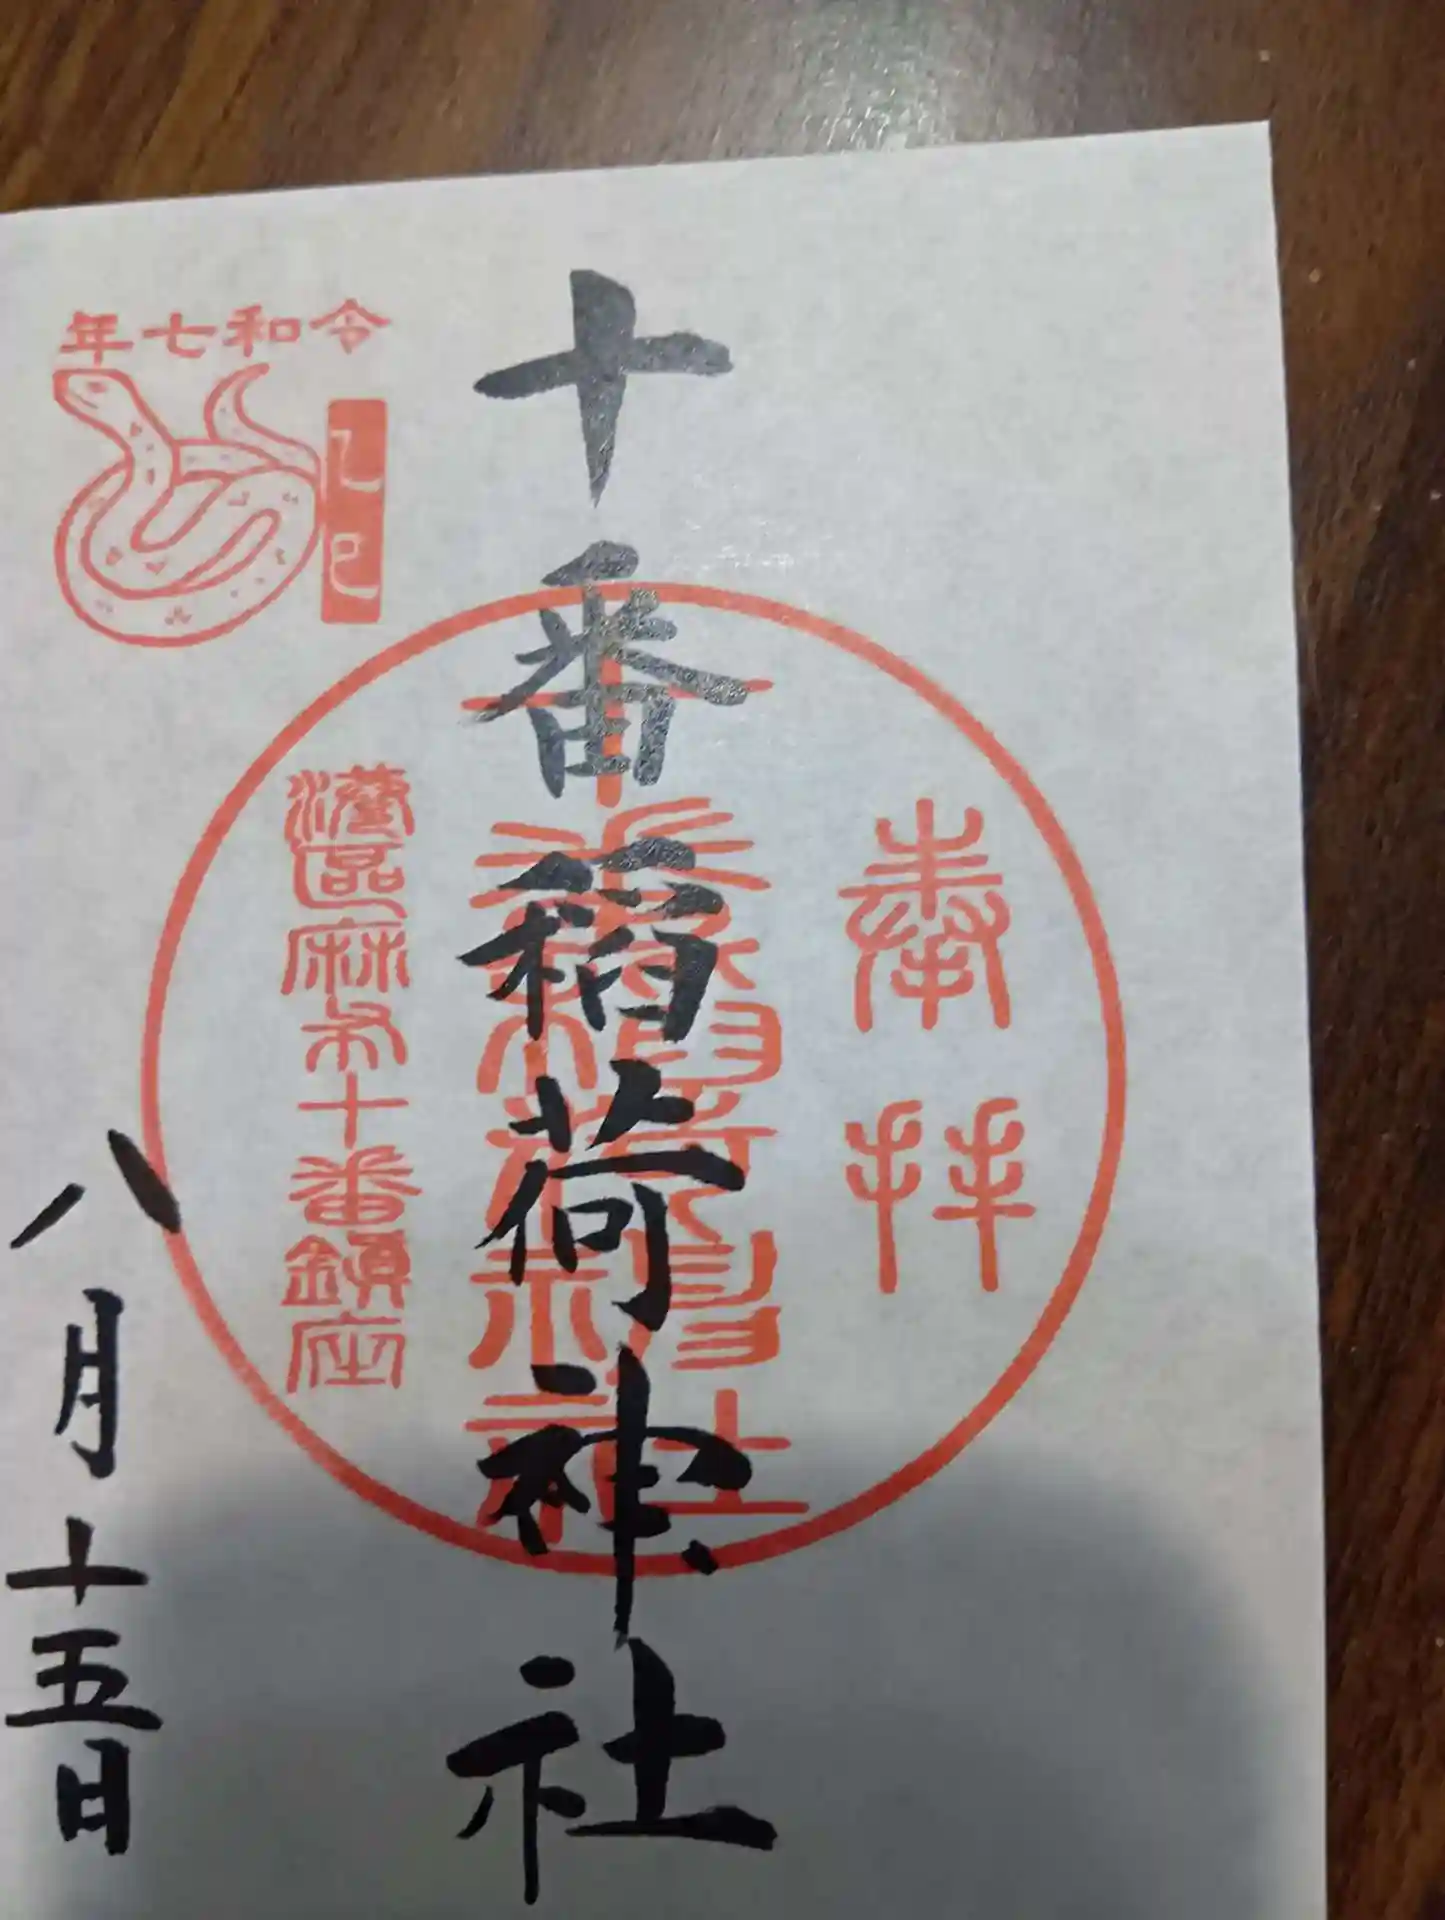 奉拝
十番稲荷神社
十番稲荷神社
港區麻布十番鎮座
令和七年
乙巳
八月十五日